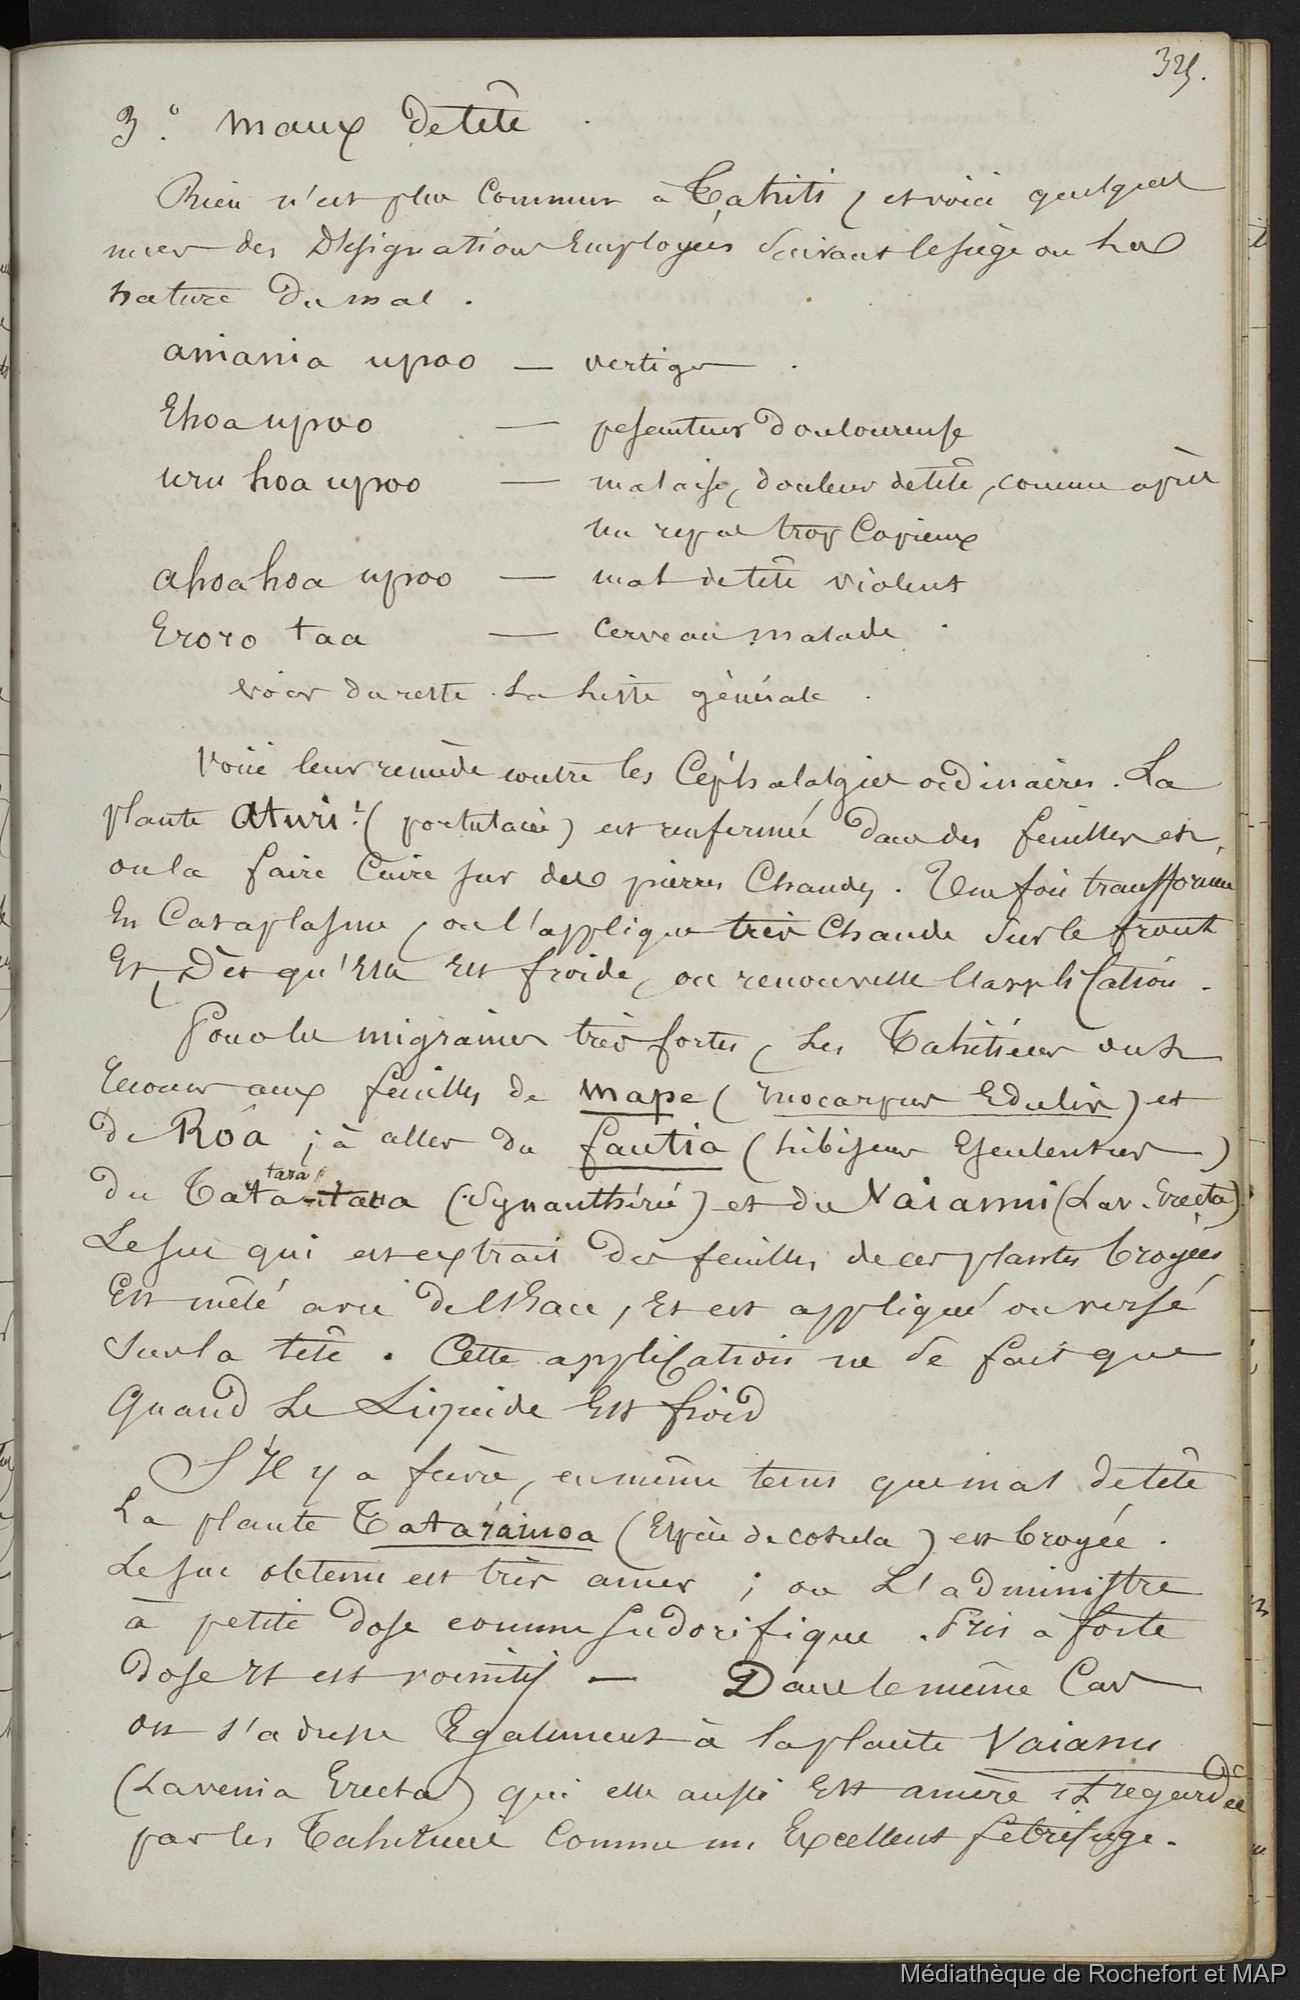 325.
3.° Maux de tête.
Rien n'est plus commun à Tahiti, et voici quelques
unes des Désignations Employées suivant le siège ou la
nature du mal.
aniania upoo — vertige.
Ehoa upoo — pesanteur douloureuse
uru hoa upoo — malaise, douleur de tête, comme après
un repas trop Copieux
ahoahoa upoo — mal de tête violent
Eroro taa — Cerveau malade.
voir du reste la liste générale.
Voici leur remède contre les Céphalalgies ordinaires. La
plante Aturi (portulacée) est renfermée dans des feuilles et,
on la faire Cuire sur des pierres Chaudes. Une fois transformée
En Cataplasme, on l'applique très Chaude sur le front
Et, Dès qu'Elle Est froide, on renouvelle l'application.
Pour les migraines très fortes, les Tahitiens ont
recours aux feuilles de Mape (Inocarpus Edulis) et
de Rôa; à celles du fautia (hibiscus Esculentus)
du Tatara tara (Synanthérée) et du Vaianu (Lav. Erecta)
Le suc qui est extrait des feuilles de ces plantes broyées
Est mêlé avec de l'Eau, Et est appliqué ou versé
Sur la tête. Cette application ne se fait que
Quand le Liquide Est froid
S'Il y a fièvre, en même tems que mal de tête
La plante Tataráimoa (Espèce de cotula) est broyée.
Le suc obtenu est très amer; on L'administre
à petite dose comme sudorifique. Pris à forte
dose Il est vomitif — Dans le même Cas
on s'adresse Egalement à la plante Vaianu
(Lavenia Erecta) qui elle aussi Est amère et regardée
par les Tahitiens comme un Excellent fébrifuge.
Médiathèque de Rochefort et MAP